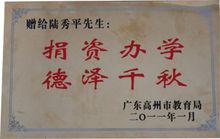 赠给陆秀平先生：
捐资办学
德泽千秋
广东高州市教育局
二〇一一年一月